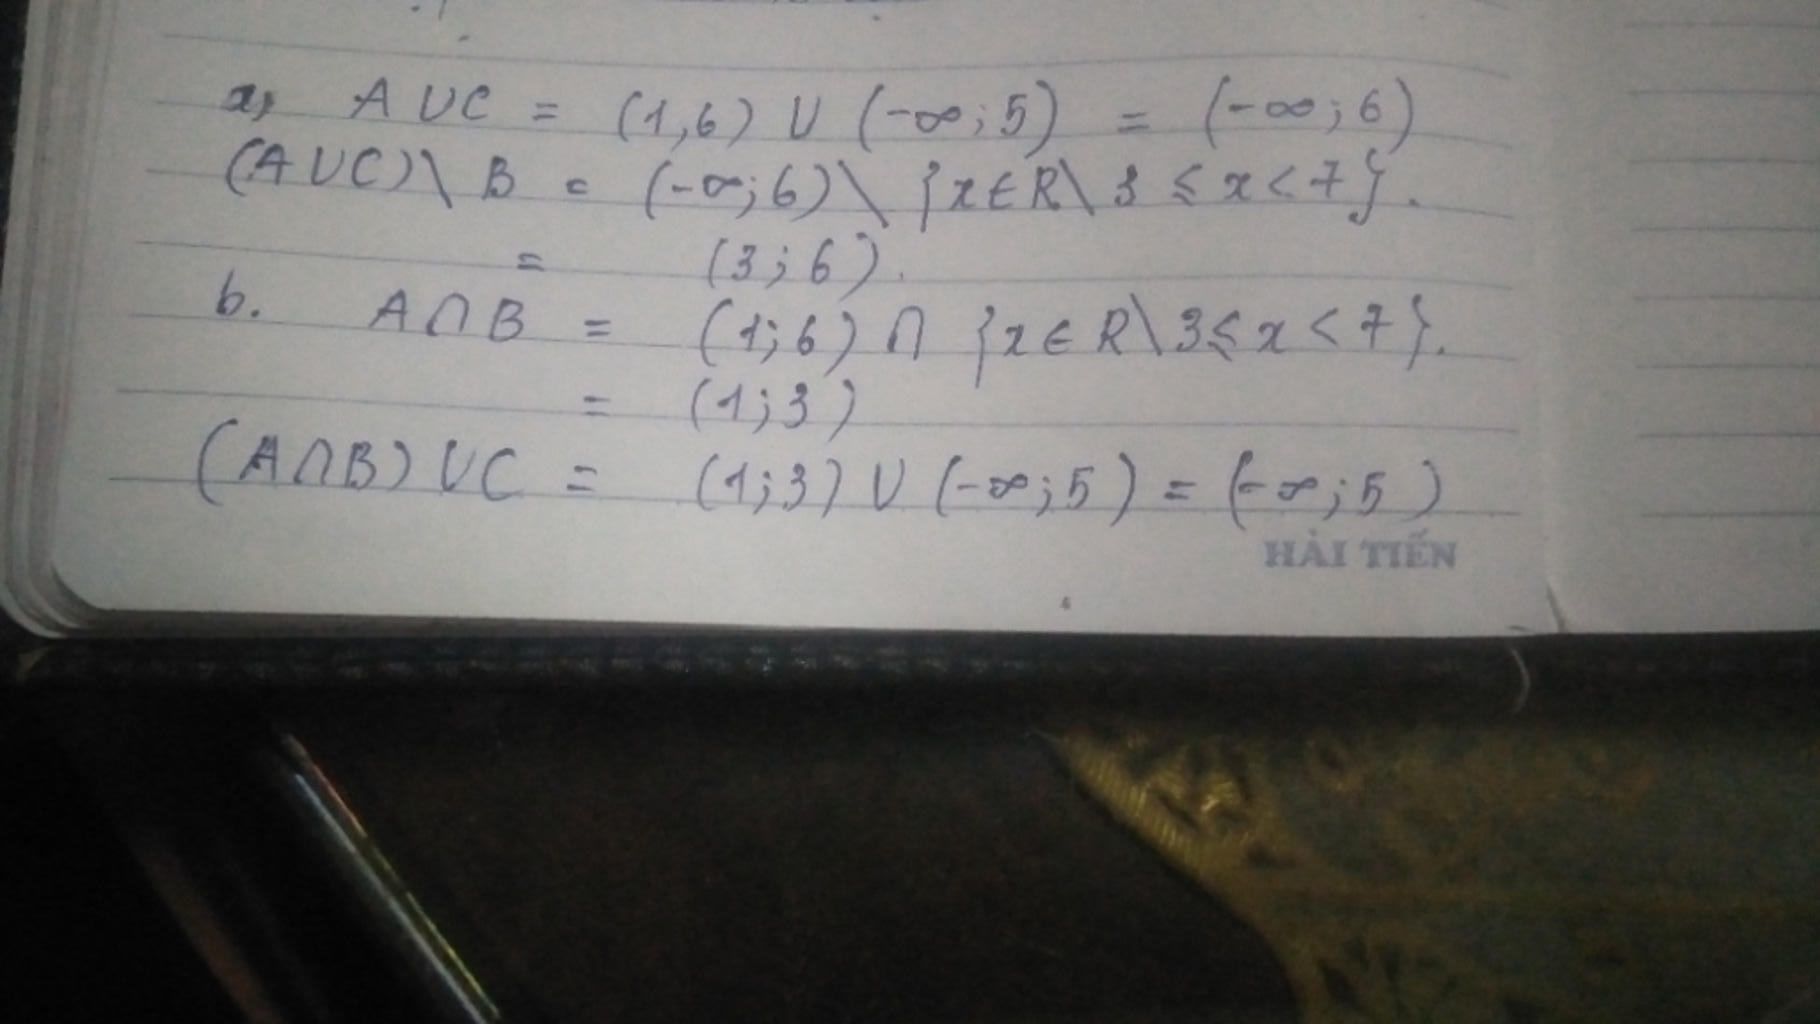 a, A ∪ C = (1,6) ∪ (-∞; 5) = (-∞; 6)
(A ∪ C) \ B = (-∞; 6) \ {x ∈ R \ 3 ≤ x < 7}.
= (3; 6).
b. A ∩ B = (1; 6) ∩ {x ∈ R \ 3 ≤ x < 7}.
= (1; 3)
(A ∩ B) ∪ C = (1; 3) ∪ (-∞; 5) = (-∞; 5)
HẢI TIẾN